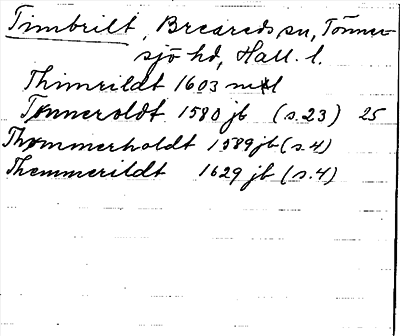 Timbrilt, Breareds sn, Tönner-
sjö hd, Hall. l.
Thimrildt 1603 mtl
Tønneroldt 1580 jb (s.23) 25
Thommerholdt 1589 jb (s.4)
Themmerildt 1629 jb (s.4)